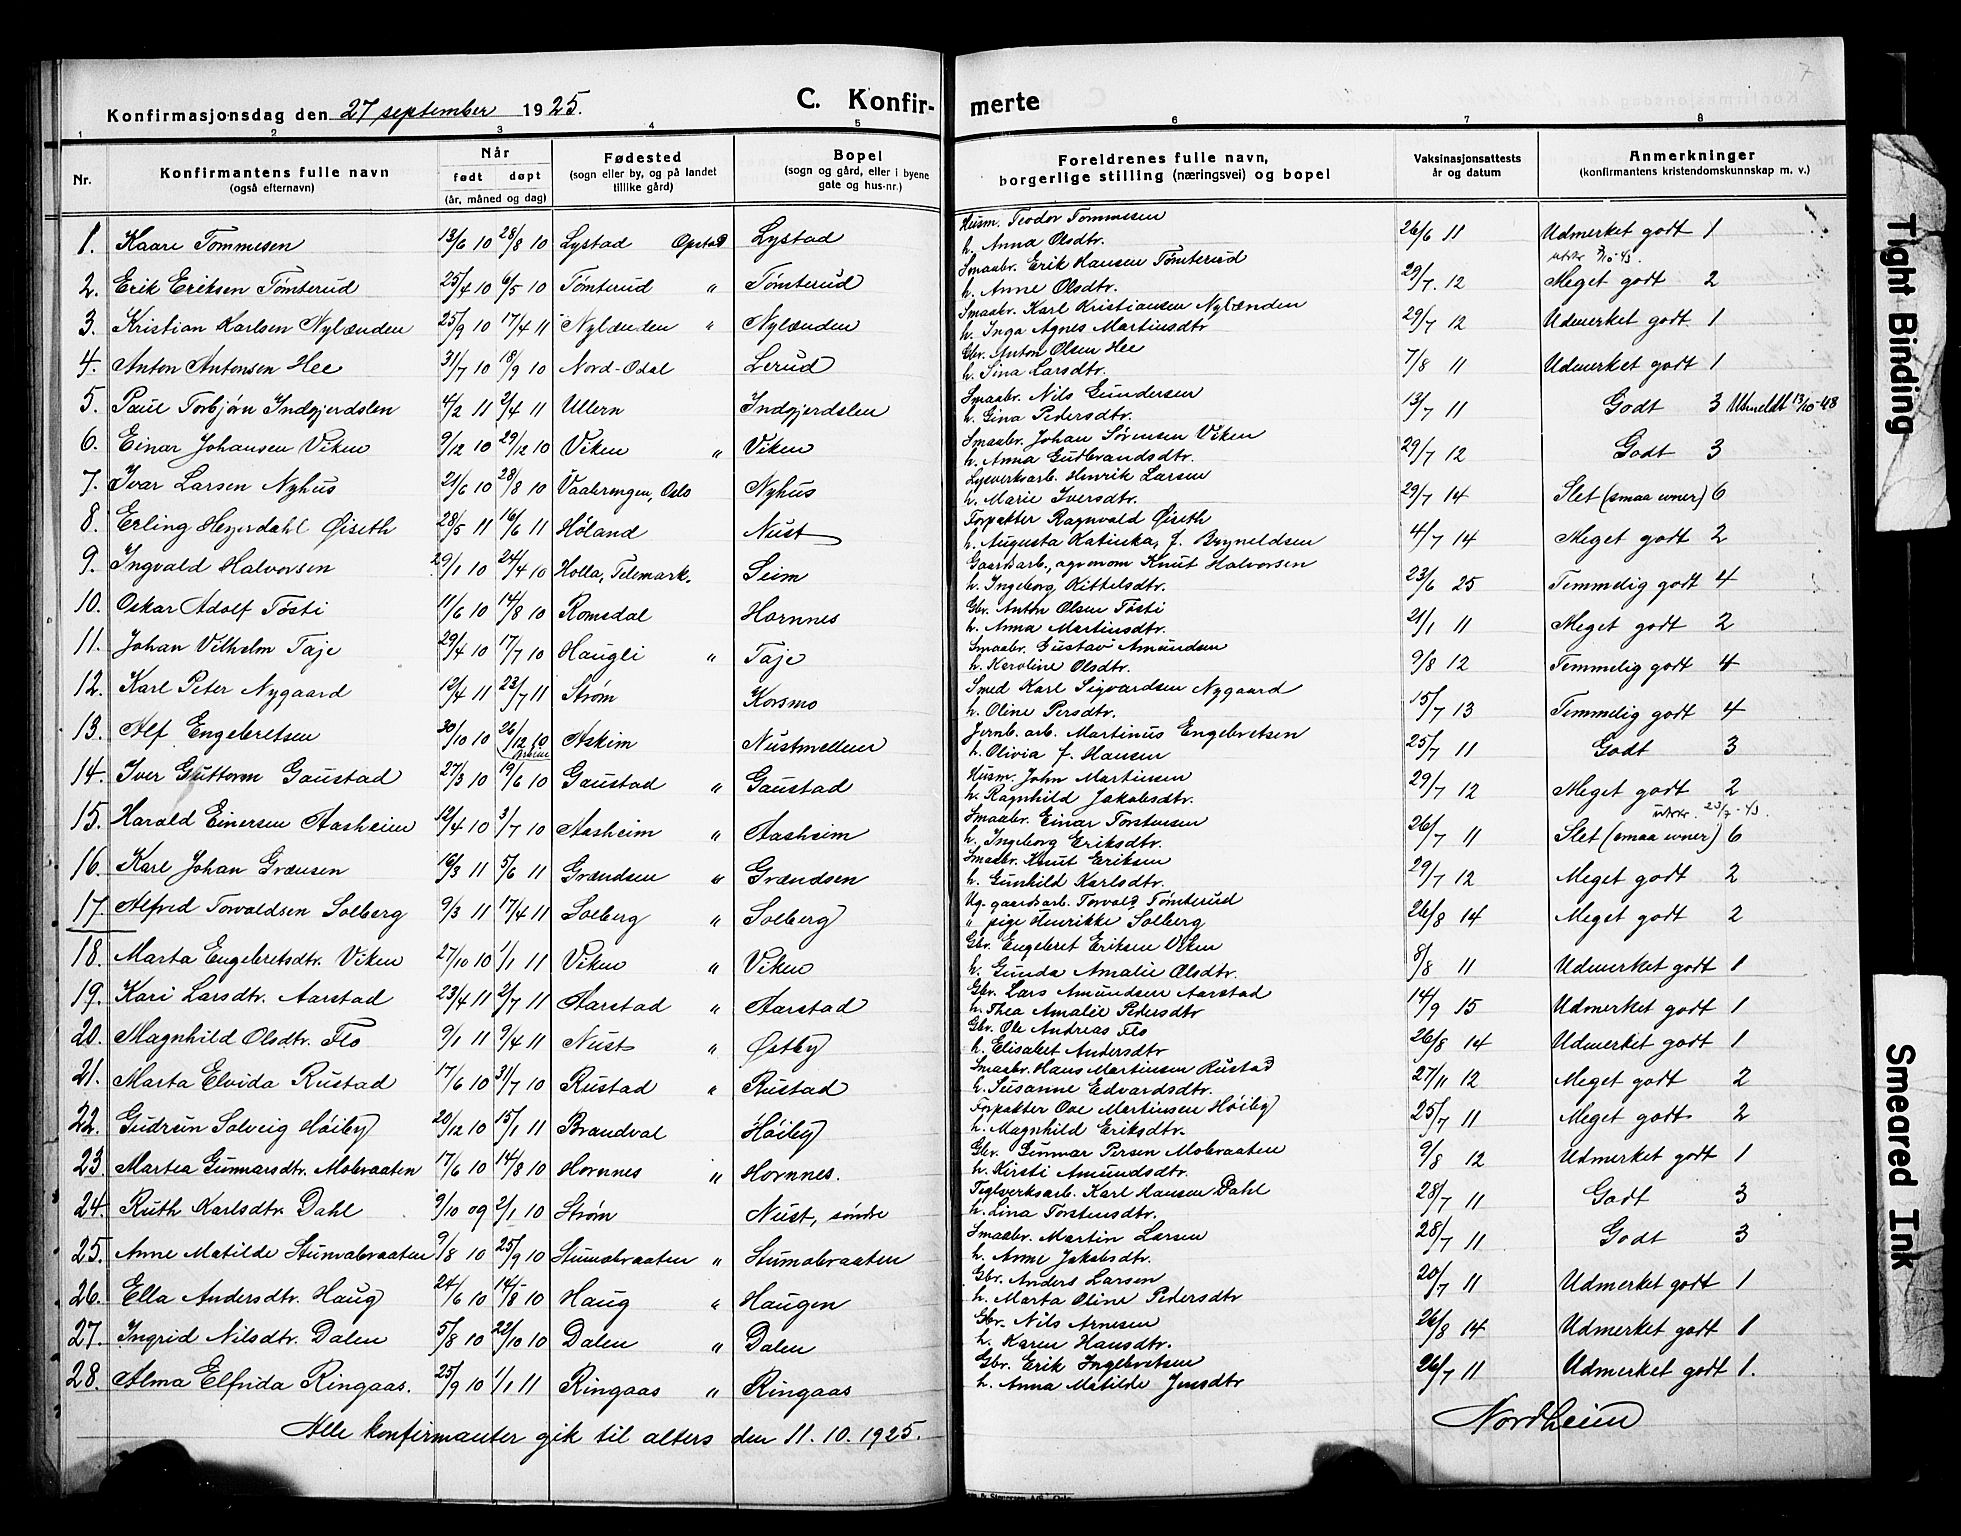 7
Konfirmasjonsdag den 27 september 1925.
C. Konfirmerte
1 2 3 4 5 6 7 8
Nr.
Konfirmantens fulle navn
(også efternavn)
Når
født døpt
(år, måned og dag)
Fødested
(sogn eller by, og på landet
tillike gård)
Bopel
(sogn og gård, eller i byene
gate og hus-nr.)
Foreldrenes fulle navn,
borgerlige stilling (næringsvei) og bopel
Vaksinasjonsattests
år og datum
Anmerkninger
(konfirmantens kristendomskunnskap m. v.)
1. Kaare Tommesen 13/6 10 28/8 10 Lystad Opstad Lystad Husm. Teodor Tommesen h. Anna Olsdtr. 26/6 11 Udmerket godt 1
2. Erik Eriksen Tømterud 25/4 10 6/5 10 Tømterud " Tømterud Smaabr. Erik Hansen Tømterud h. Anne Olsdtr. 29/7 12 Meget godt 2
3. Kristian Karlsen Nylænden 25/9 10 17/4 11 Nylænden " Nylænden Smaabr. Karl Kristiansen Nylænden h. Inga Agnes Martinsdtr 29/7 12 Udmerket godt 1
4. Anton Antonsen Hee 31/7 10 18/9 10 Nord-Odal Lerud Gbr. Anton Olsen Hee h. Sina Larsdtr. 7/8 11 Udmerket godt 1
5. Paul Torbjørn Indgjerdslen 4/2 11 2/4 11 Ullern Indgjerdslen Smaabr. Nils Gundersen h. Gina Pedersdtr. 13/7 11 Godt 3 Utmeldt 13/10-48
6. Einar Johansen Viken 9/12 10 29/12 10 Viken " Viken Smaabr. Johan Sørensen Viken h. Anna Gudbrandsdtr. 29/7 12 Godt 3
7. Ivar Larsen Nyhus 21/6 10 28/8 10 Vaalerengen, Oslo Nyhus Lysverksarb. Henrik Larsen h. Marie Iversdtr. 29/7 14 Slet (smaa evner) 6
8. Erling Heyerdahl Øiseth 28/5 11 16/6 11 Høland Nust Forpakter Ragnvald Øiseth h. Augusta Katinka, f. Bryneldsen 4/7 14 Meget godt 2
9. Ingvald Halvorsen 29/1 10 24/4 10 Holla, Telemark. Seim Gaardsarb., agronom Knut Halvorsen h. Ingeborg Kittelsdtr. 23/6 25 Temmelig godt 4
10. Oskar Adolf Tosti 11/6 10 14/8 10 Romsdal Hornnes Gbr. Anton Olsen Tosti h. Anna Martinsdtr. 21/1 11 Meget godt 2
11. Johan Vilhelm Taje 29/4 10 17/7 10 Haugli " Taje Smaabr. Gustav Amundsen h. Karoline Olsdtr. 9/8 12 Temmelig godt 4
12. Karl Peter Nygaard 12/4 11 23/7 11 Strøm Korsmo Smed Karl Sigvardsen Nygaard h. Oline Persdtr. 15/7 13 Temmelig godt 4
13. Alf Engebretsen 30/10 10 26/12 10 Askim Nustmellem Jernb. arb. Martinus Engebretsen h. Olivia f. Hansen 25/7 11 Godt 3
14. Iver Guttorm Gaustad 27/3 10 19/6 10 Gaustad " Gaustad Husm. John Martinsen h. Ragnhild Jakobsdtr. 29/7 12 Meget godt 2
15. Harald Einersen Aasheim 12/4 10 3/7 10 Aasheim " Aasheim Smaabr. Einar Torstensen h. Ingeborg Eriksdtr. 26/7 11 Slet (smaa evner) 6
16. Karl Johan Grænsen 16/3 11 5/6 11 Grændsen " Grændsen Smaabr. Knut Eriksen h. Gunhild Karlsdtr. 29/7 12 Meget godt 2
17. Alfred Torvaldsen Solberg 9/3 11 17/4 11 Solberg " Solberg Ug. gaardsarb. Torvald Tømterud " pige Henrikke Solberg 26/8 14 Meget godt 2
18. Marta Engebretsdtr. Viken 27/10 10 1/1 11 Viken " Viken Gbr. Engebret Eriksen Viken h. Gunda Amalie Olsdtr. 8/8 11 Udmerket godt 1
19. Kari Larsdtr. Aarstad 23/4 11 2/7 11 Aarstad " Aarstad Gbr. Lars Amundsen Aarstad h. Thea Amalie Pedersdtr 14/9 15 Udmerket godt 1
20. Magnhild Olsdtr. Flo 9/1 11 9/4 11 Nust " Østby Gbr. Ole Andreas Flo h. Elisabet Andersdtr 26/8 14 Udmerket godt 1
21. Marta Elvida Rustad 17/6 10 31/7 10 Rustad " Rustad Smaabr. Hans Martinsen Rustad h. Susanne Edvardsdtr. 27/11 12 Meget godt 2
22. Gudrun Solveig Høiby 20/12 10 15/1 11 Brandval Høiby Forpakter Ove Martinsen Høiby h. Magnhild Eriksdtr. 25/7 11 Meget godt 2
23. Martea Gunnarsdtr. Mobraaten 17/6 10 14/8 10 Hornnes " Hornnes. Gbr. Gunnar Persen Mobraaten h. Kirsti Amundsdtr. 9/8 12 Udmerket godt 1
24. Ruth Karlsdtr. Dahl 9/10 09 2/1 10 Strøm Nust, søndre Teglverksarb. Karl Hansen Dahl h. Lina Torstensdtr. 28/7 11 Godt 3
25. Anne Matilde Stumobraaten 9/8 10 25/9 10 Stumobraaten " Stumobraaten Smaabr. Martin Larsen h. Anne Jakobsdtr. 28/7 11 Godt 3
26. Ella Andersdtr. Haug 24/6 10 14/8 10 Haug " Haugen Gbr. Anders Larsen h. Marta Oline Pedersdtr 20/7 11 Udmerket godt 1
27. Ingrid Nilsdtr. Dalen 5/8 10 22/10 10 Dalen " Dalen Gbr. Nils Arnesen h. Karen Hansdtr. 26/8 14 Udmerket godt 1
28. Alma Elfrida Ringaas. 25/9 10 1/1 11 Ringaas " Ringaas Gbr. Erik Ingebretsen h. Anna Matilde Jensdtr 26/7 11 Udmerket godt 1.
Alle konfirmanter gik til alters den 11. 10. 1925.
Nordheim
Tight Binding
Smeared Ink